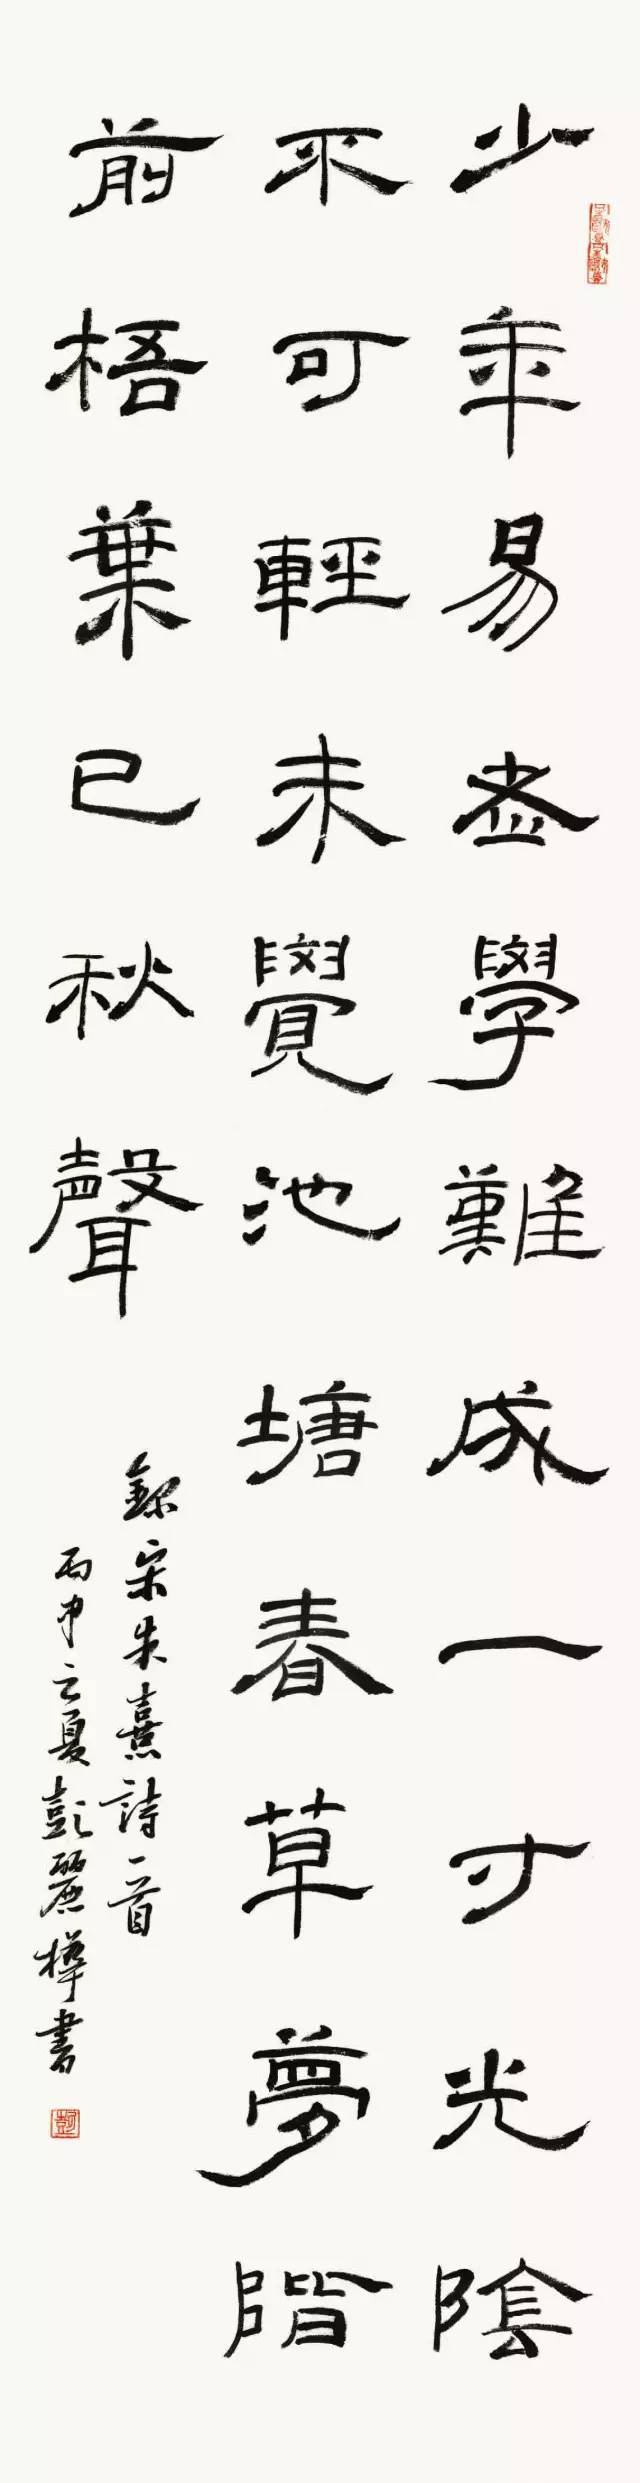 少年易老學難成一寸光陰
不可輕未覺池塘春草夢階
前梧葉已秋聲
錄宋朱熹詩一首
丙申之夏彭麗樺書
彭